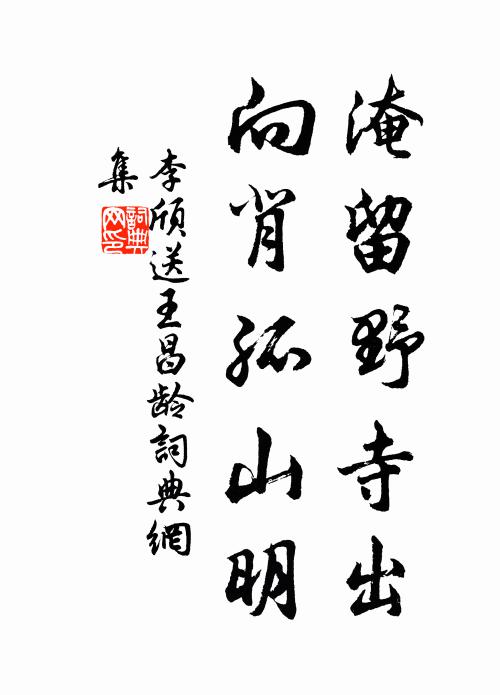 淹留野寺出
向背孤山明
李頎送王昌龄詞典網
集
詞典
网印